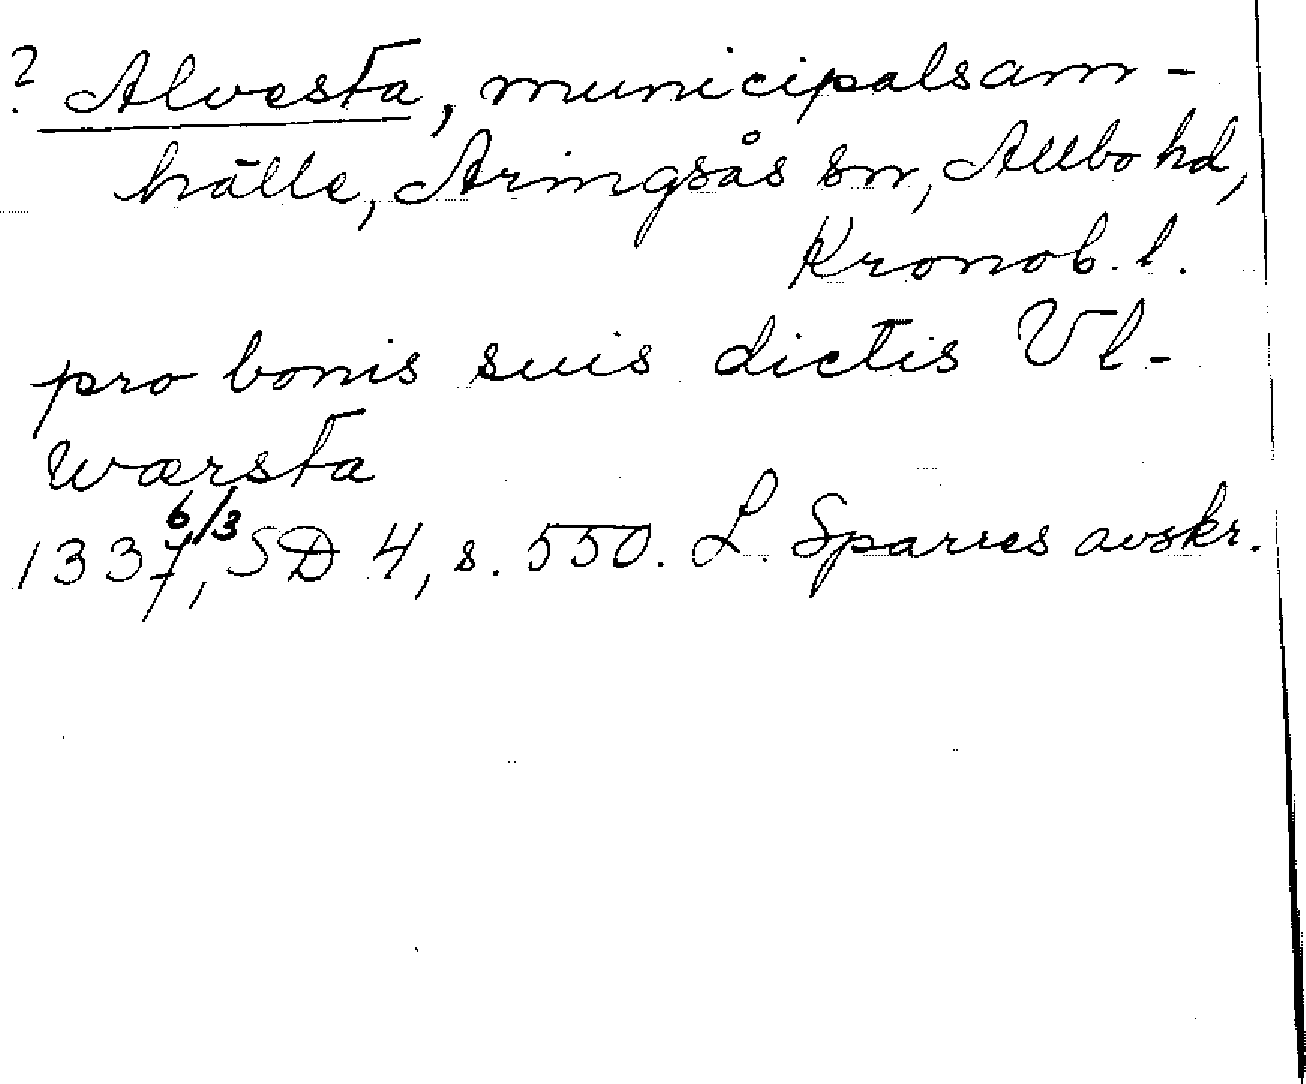 ? Alvesta, municipalsam-
hälle, Aringsås sn, Allbo hd,
Kronob. l.
pro bonis suis dictis Vl-
wærsta
1337 6/3, SD 4, s. 550. L. Sparres avskr.